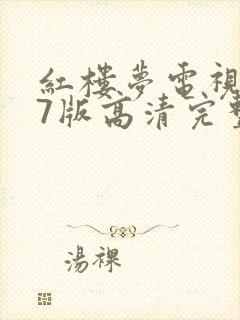 紅樓夢電視
7版高清完整
湯裸